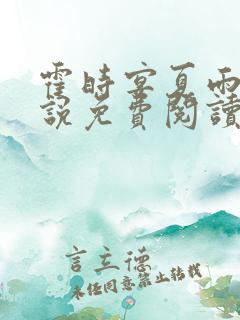 霍時宴夏雨
說免費閱讀
言立德
未经同意禁止转载